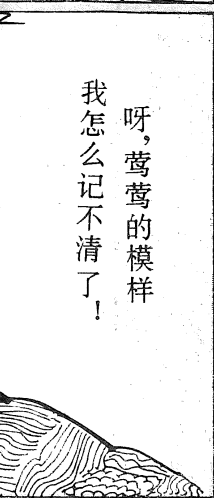 呀，莺莺的模样
我怎么记不清了！